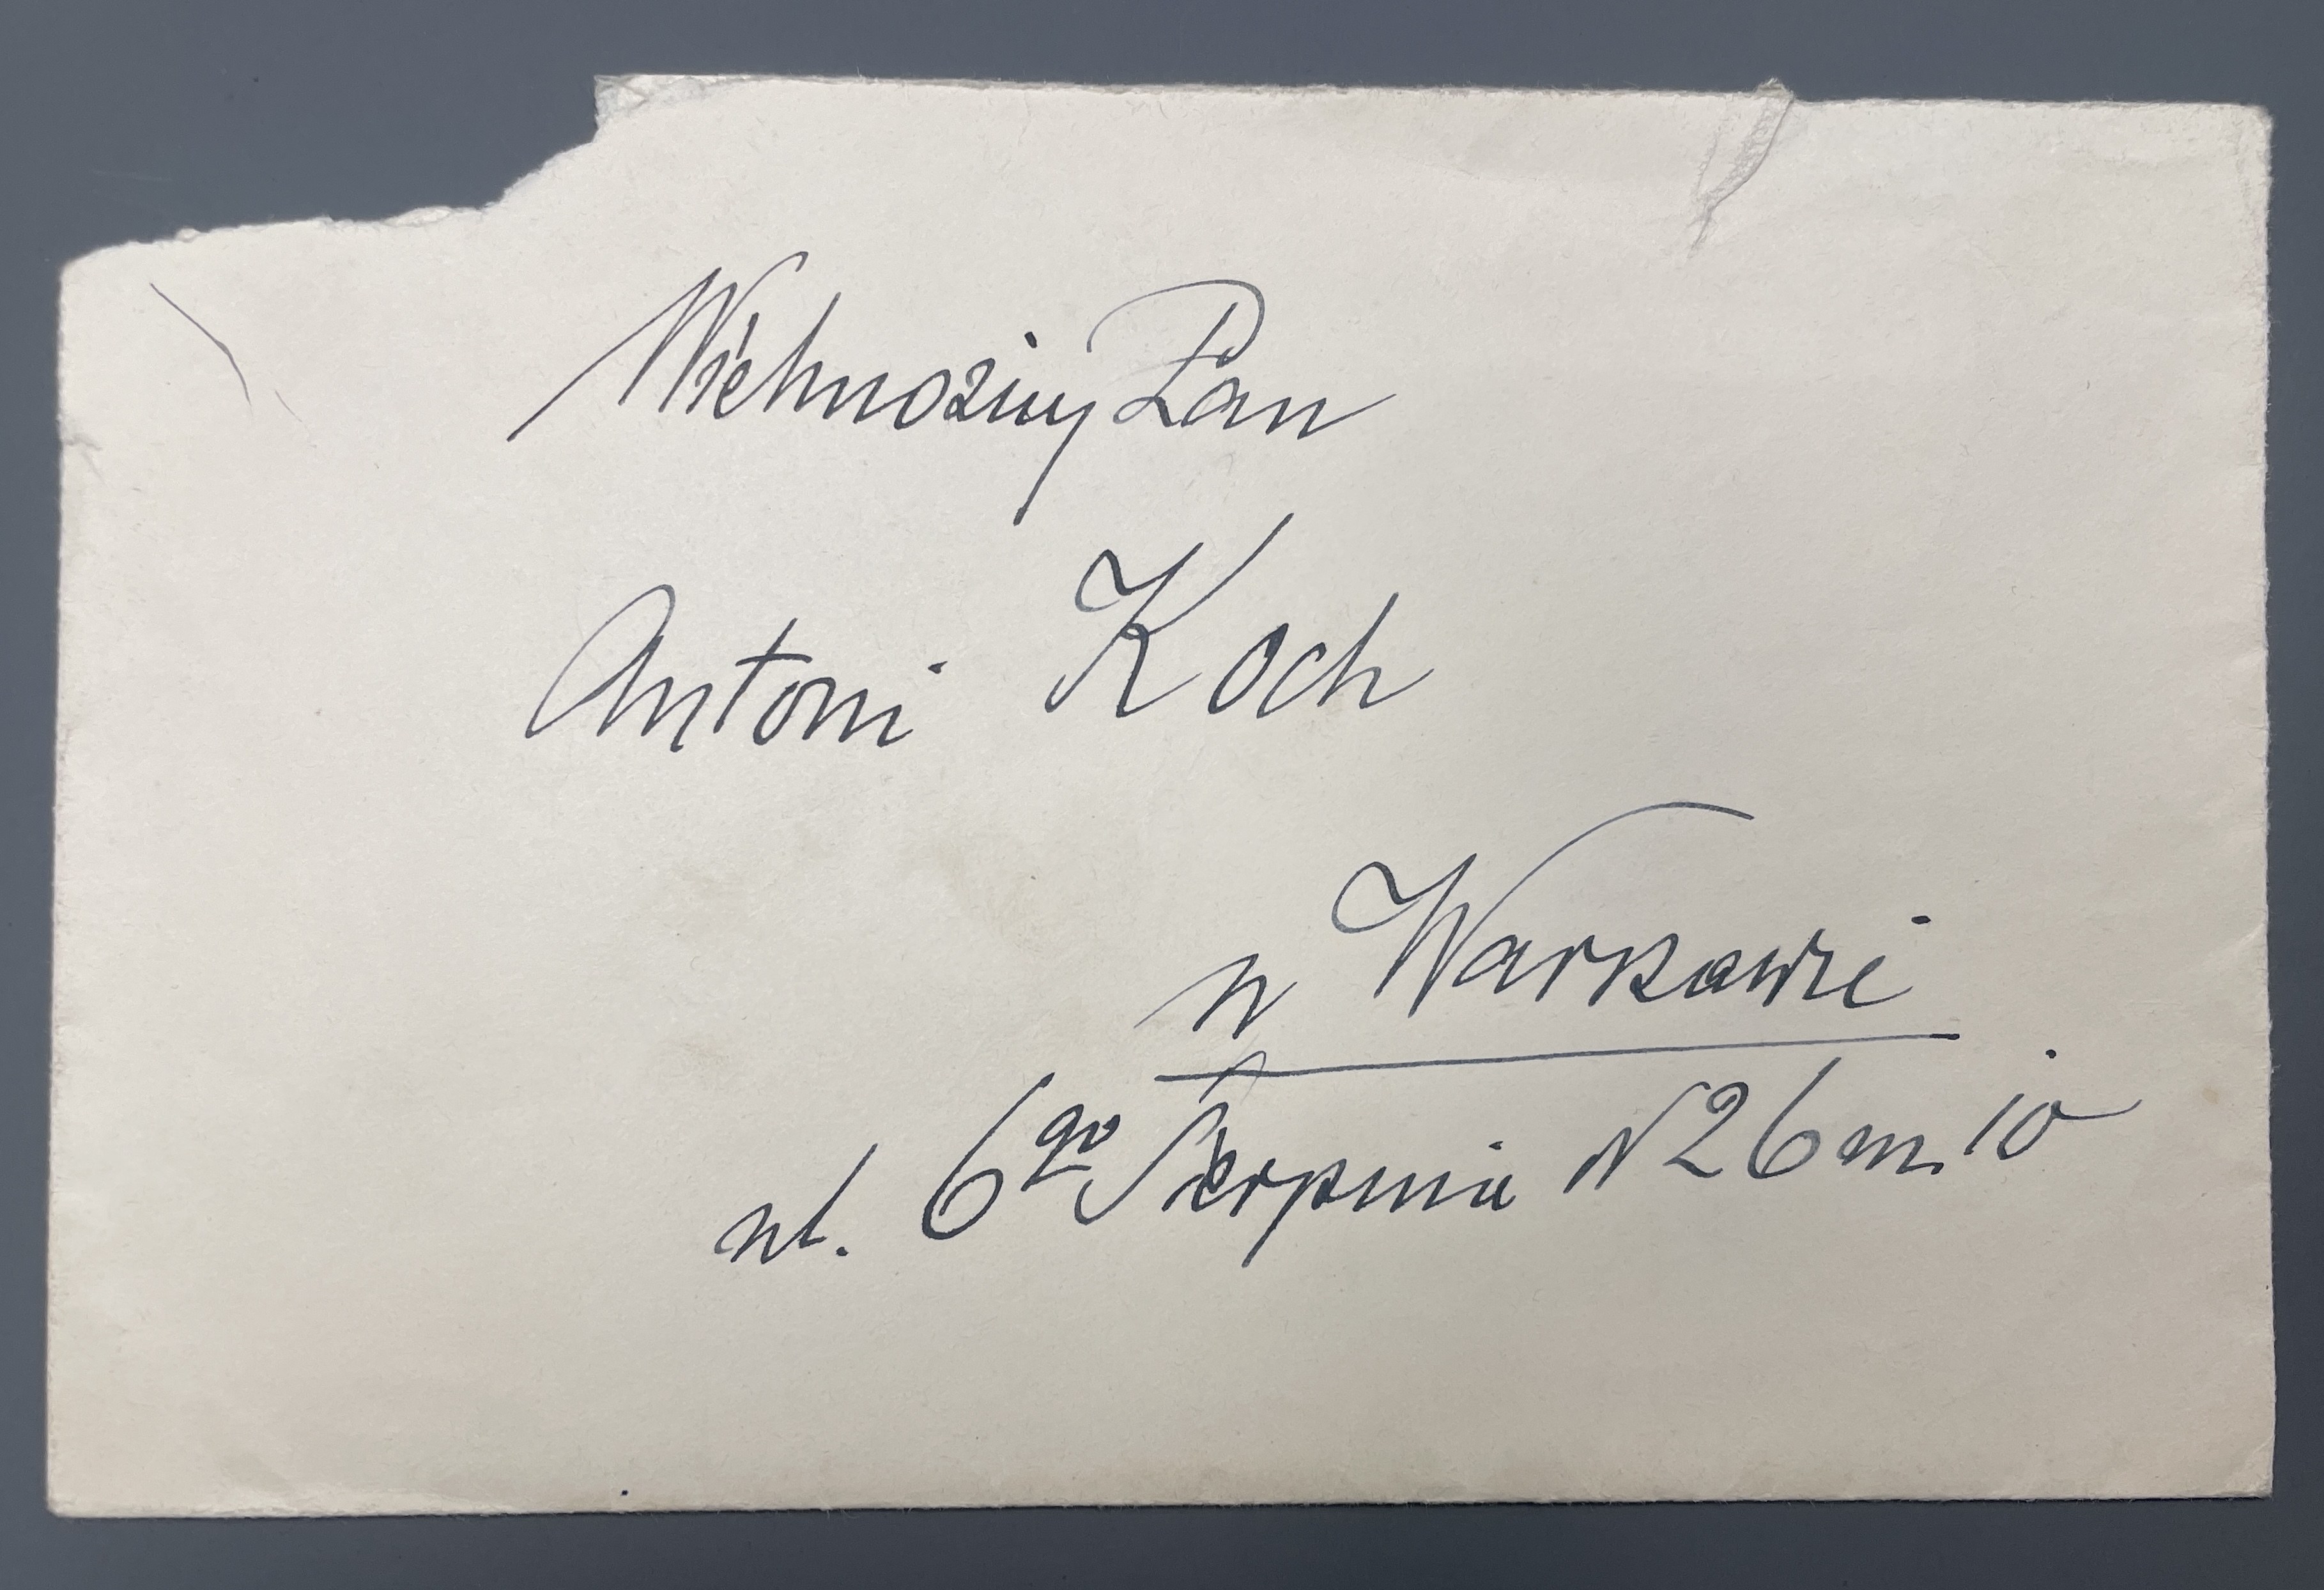 Wielmożny Pan
Antoni Koch
w Warszawie
ul. 6go Sierpnia N 26 m. 10